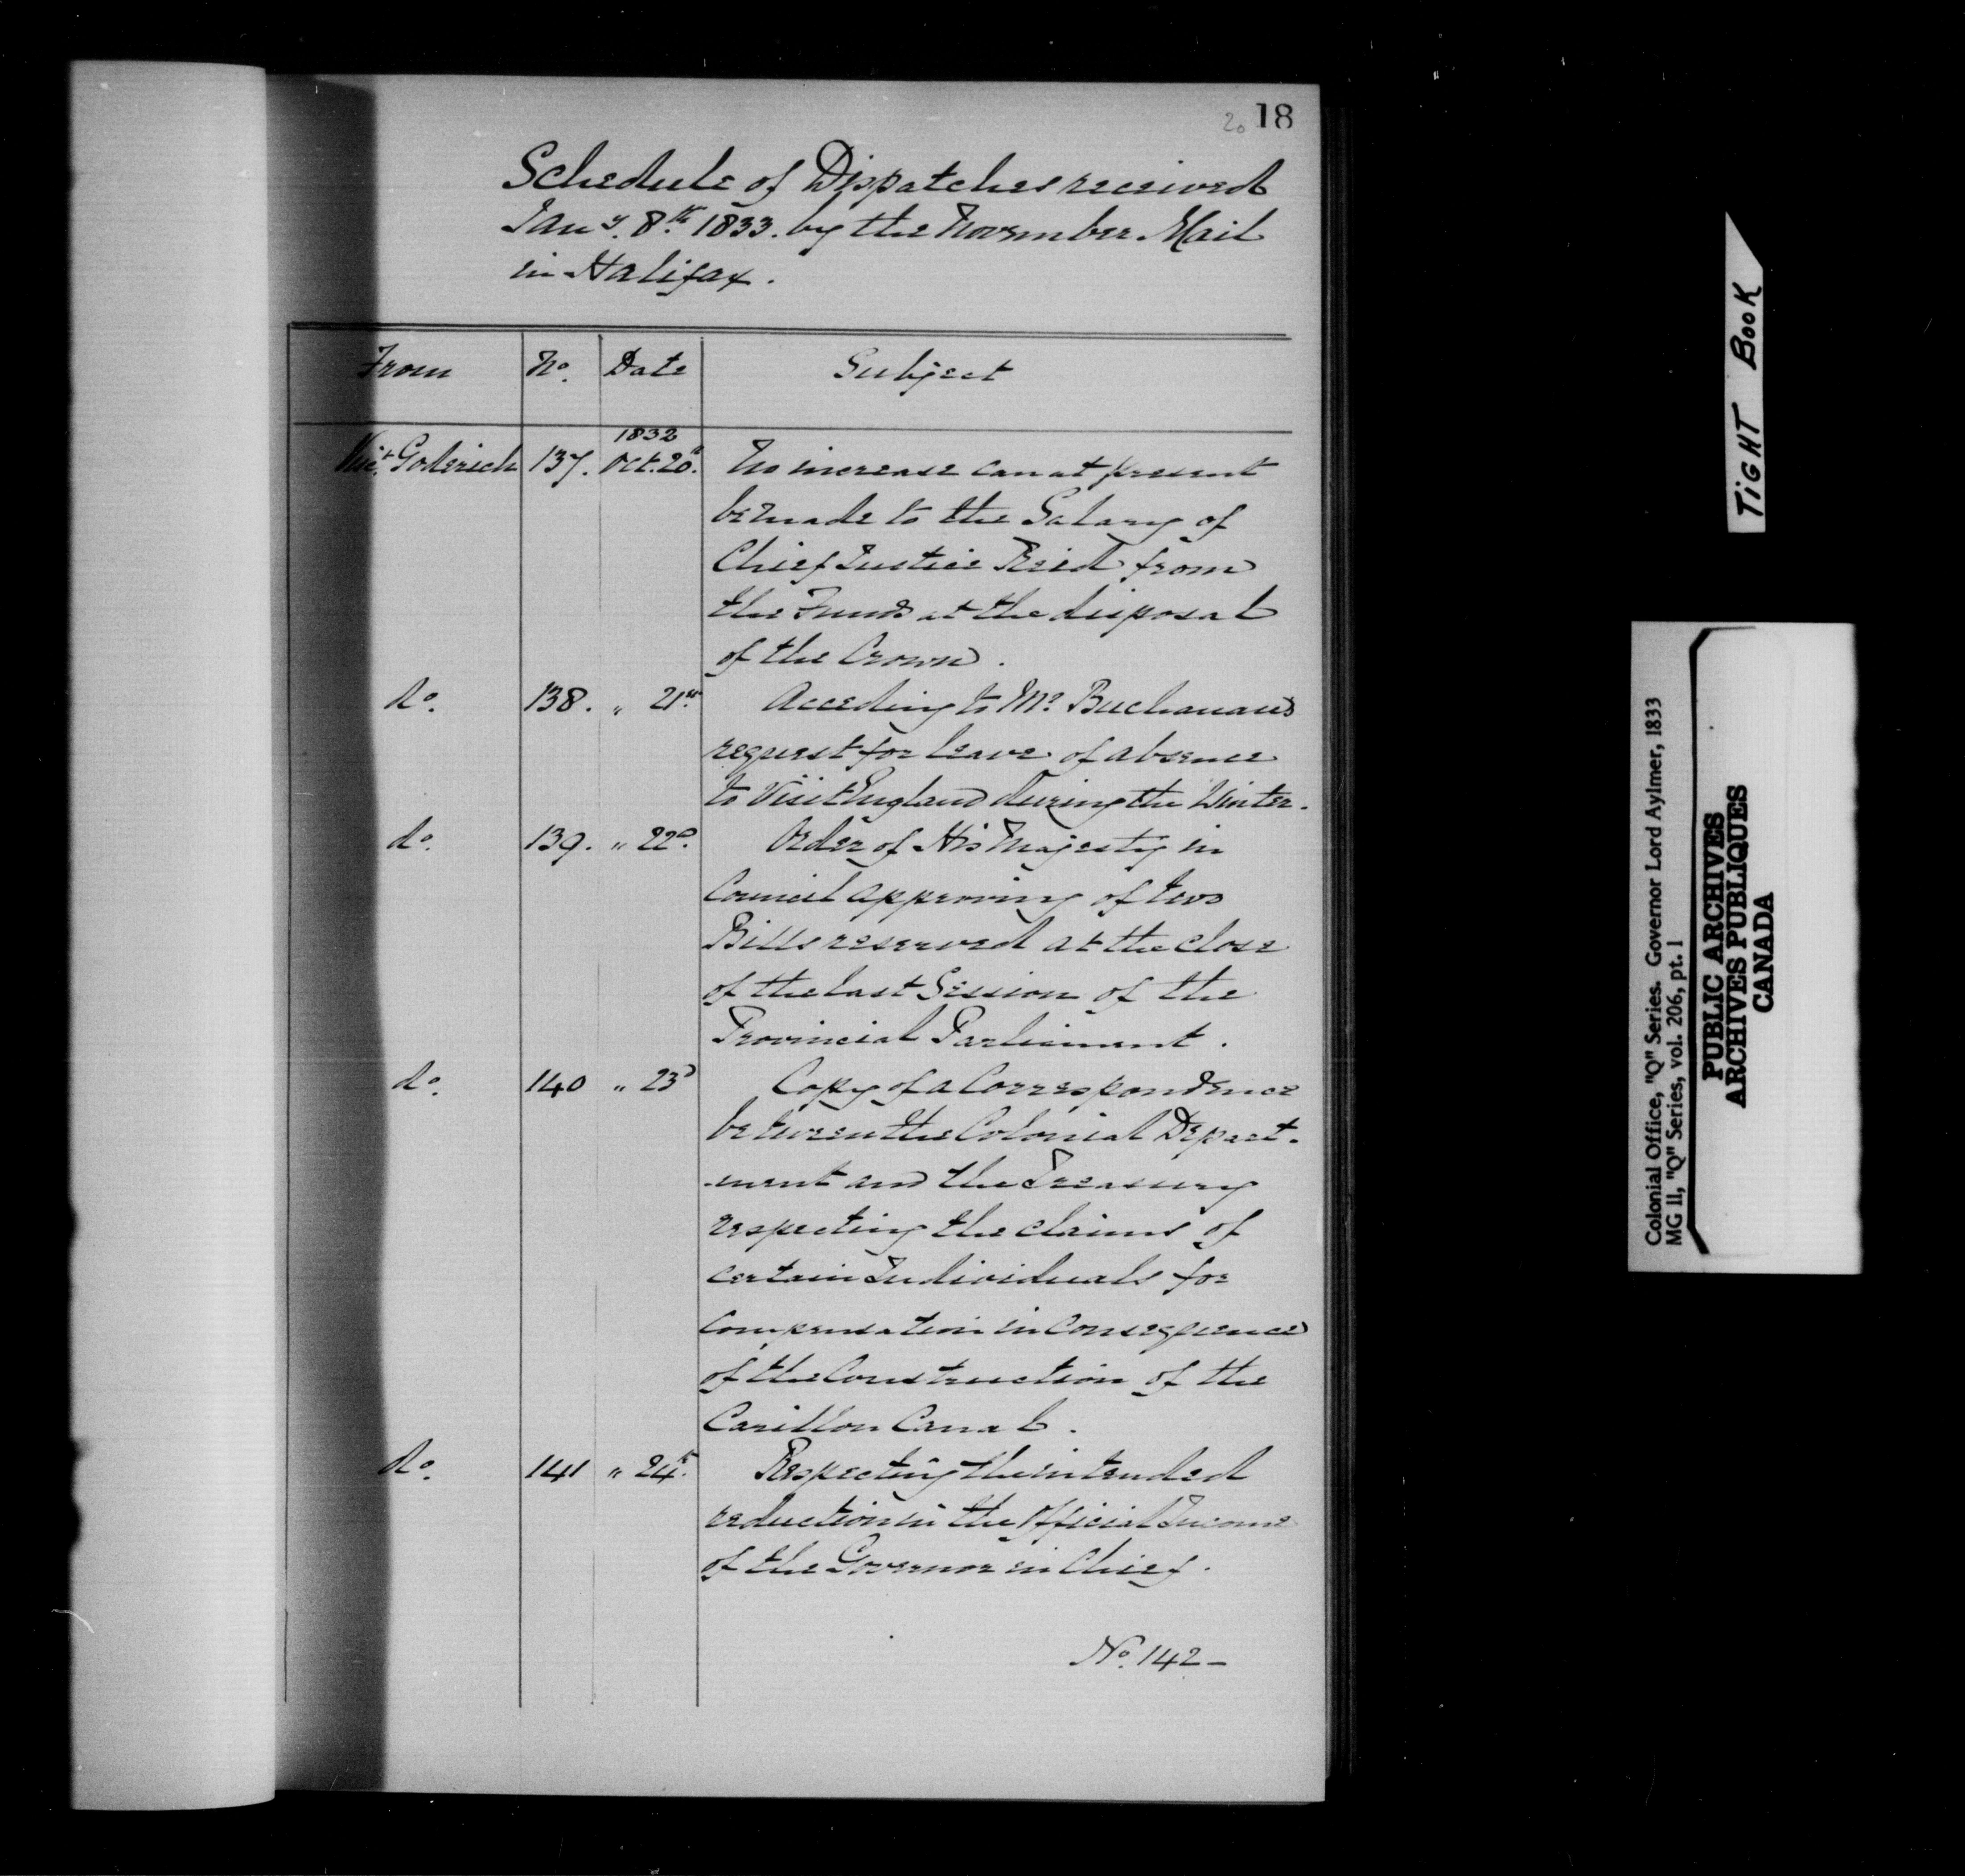 20 18
Schedule of Dispatches received
Jany. 8th. 1833. by the November Mail
in Halifax.
From No. Date Subject
1832
Visct. Goderich 137. Oct. 20th. No increase can at present
be made to the Salary of
Chief Justice Reid from
the Funds at the disposal
of the Crown.
do. 138. " 21st. Acceding to Mr. Buchanan's
request for leave of absence
to Visit England during the Winter.
do. 139. " 22d. Order of His Majesty in
Council approving of two
Bills reserved at the close
of the last Session of the
Provincial Parliament.
do. 140 " 23d Copy of a Correspondence
between the Colonial Depart-
-ment and the Treasury
respecting the claims of
certain Individuals for
Compensation in Consequence
of the Construction of the
Carillon Canal.
do. 141 " 24th. Respecting the intended
reduction in the Official Income
of the Governor in Chief.
No. 142 –
TIGHT BOOK
Colonial Office, "Q" Series. Governor Lord Aylmer, 1833
MG 11, "Q" Series, vol. 206, pt. 1
PUBLIC ARCHIVES
ARCHIVES PUBLIQUES
CANADA